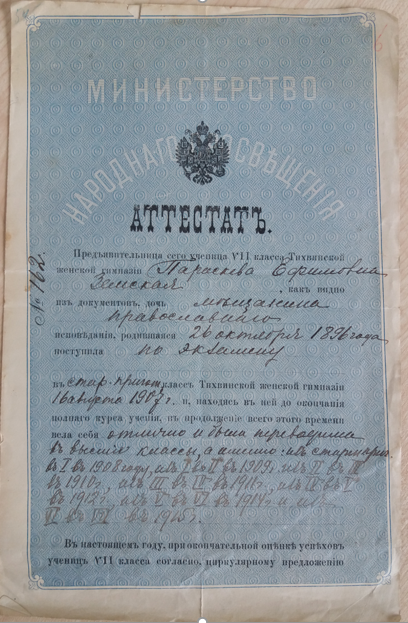 МИНИСТЕРСТВО
НАРОДНАГО ПРОСВѢЩЕНІЯ
АТТЕСТАТЪ.
№ 162.
Предъявительница сего ученица VII класса Тихвинской
женской гимназіи Параскева Ефимовна
Земская, какъ видно
изъ документовъ, дочь мѣщанина
православнаго
исповѣданія, родившаяся 26 октября 1896 года
поступила по экзамену
въ стар. пригот. классъ Тихвинской женской гимназіи
16 августа 1907 г. и, находясь въ ней до окончанія
полнаго курса ученія, въ продолженіе всего этого времени
вела себя отлично и была переводима
въ высшіе классы, а именно: изъ старш. приг.
въ I въ 1908 году, изъ I въ II въ 1909, изъ II въ III
въ 1910 г., изъ III въ IV въ 1911 г., изъ IV въ V
въ 1912 г., изъ V въ VI въ 1914 г. и изъ
VI въ VII въ 1915 г.
Въ настоящемъ году, при окончательной оцѣнкѣ успѣховъ
ученицъ VII класса согласно, циркулярному предложенію